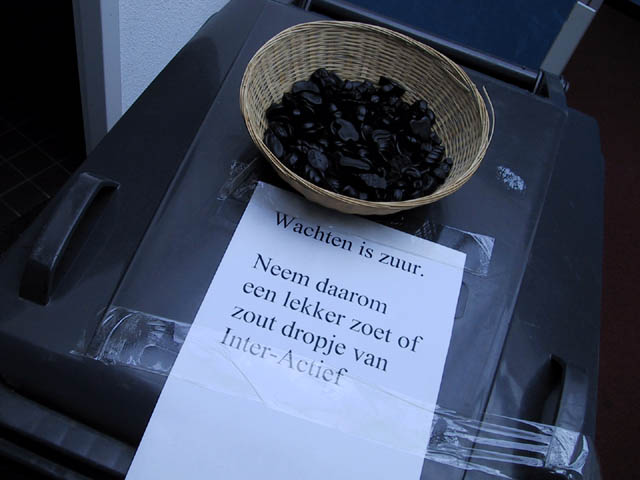 Wachten is zuur.
Neem daarom
een lekker zoet of
zout dropje van
Inter-Actief